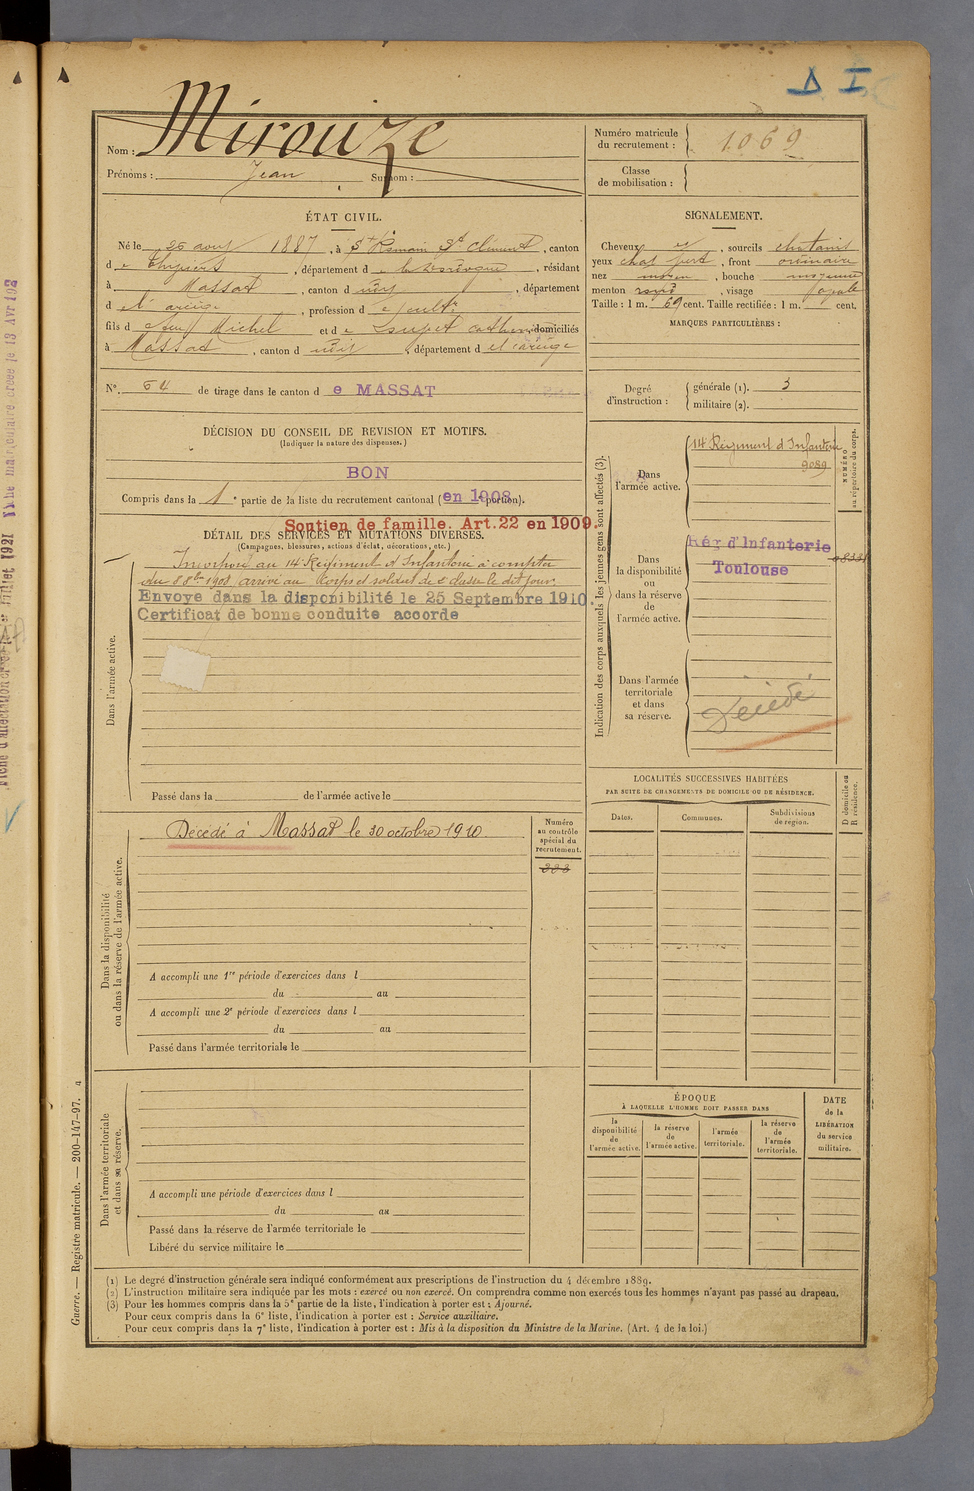 Δ I
Nom : Mirouze
Prénoms : Jean Surnom :
Numéro matricule du recrutement : 1069
Classe de mobilisation :
ÉTAT CIVIL.
Né le 25 aout 1887, à St Romain St Clément, canton
de Thiviers, département de la Dordogne, résidant
à Massat, canton d udit, département
de l'ariège, profession de
fils de feu Michel et de domiciliés
à Massat, canton d udit, département de l'ariège
No. 64 de tirage dans le canton de MASSAT
DÉCISION DU CONSEIL DE REVISION ET MOTIFS.
(Indiquer la nature des dispenses.)
BON
Compris dans la 1e partie de la liste du recrutement cantonal (en 1908 portion).
Soutien de famille. Art.22 en 1909.
DÉTAIL DES SERVICES ET MUTATIONS DIVERSES.
(Campagnes, blessures, actions d'éclat, décorations, etc.)
Dans l'armée active.
Incorporé au 14 Régiment d'Infanterie à compter
du 8 8bre 1908 arrivé au Corps et soldat de 2e classe le dit jour.
Envoyé dans la disponibilité le 25 Septembre 1910
Certificat de bonne conduite accordé
Passé dans la de l'armée active le
Dans la disponibilité
ou dans la réserve de l'armée active.
Décédé à Massat le 30 octobre 1910
Numéro
au contrôle
spécial du
recrutement.
333
A accompli une 1re période d'exercices dans l
du au
A accompli une 2e période d'exercices dans l
du au
Passé dans l'armée territoriale le
Dans l'armée territoriale
et dans sa réserve.
A accompli une période d'exercices dans l
du au
Passé dans la réserve de l'armée territoriale le
Libéré du service militaire le
SIGNALEMENT.
Cheveux et, sourcils chatains
yeux chat, front ordinaire
nez moyen, bouche moyenne
menton rond, visage ovale
Taille : 1 m. 69 cent. Taille rectifiée : 1 m. cent.
MARQUES PARTICULIÈRES :
Degré d'instruction :
générale (1). 3
militaire (2).
Indication des corps auxquels les jeunes gens sont affectés (3).
NUMÉRO
au répertoire du corps.
Dans
l'armée active.
14 Régiment d'Infanterie
9089
Dans
la disponibilité
ou
dans la réserve
de
l'armée active.
Rég d'Infanterie
Toulouse
Dans l'armée
territoriale
et dans
sa réserve.
Décédé
LOCALITÉS SUCCESSIVES HABITÉES
PAR SUITE DE CHANGEMENTS DE DOMICILE OU DE RÉSIDENCE.
Dates. Communes. Subdivisions de région.
D domicile ou
R résidence.
ÉPOQUE
À LAQUELLE L'HOMME DOIT PASSER DANS
la disponibilité de l'armée active.
la réserve de l'armée active.
l'armée territoriale.
la réserve de l'armée territoriale.
DATE
de la
LIBÉRATION
du service
militaire.
(1) Le degré d'instruction générale sera indiqué conformément aux prescriptions de l'instruction du 4 décembre 1889.
(2) L'instruction militaire sera indiquée par les mots : exercé ou non exercé. On comprendra comme non exercés tous les hommes n'ayant pas passé au drapeau.
(3) Pour les hommes compris dans la 5e partie de la liste, l'indication à porter est : Ajourné.
Pour ceux compris dans la 6e liste, l'indication à porter est : Service auxiliaire.
Pour ceux compris dans la 7e liste, l'indication à porter est : Mis à la disposition du Ministre de la Marine. (Art. 4 de la loi.)
Guerre. — Registre matricule. — 200-147-97.